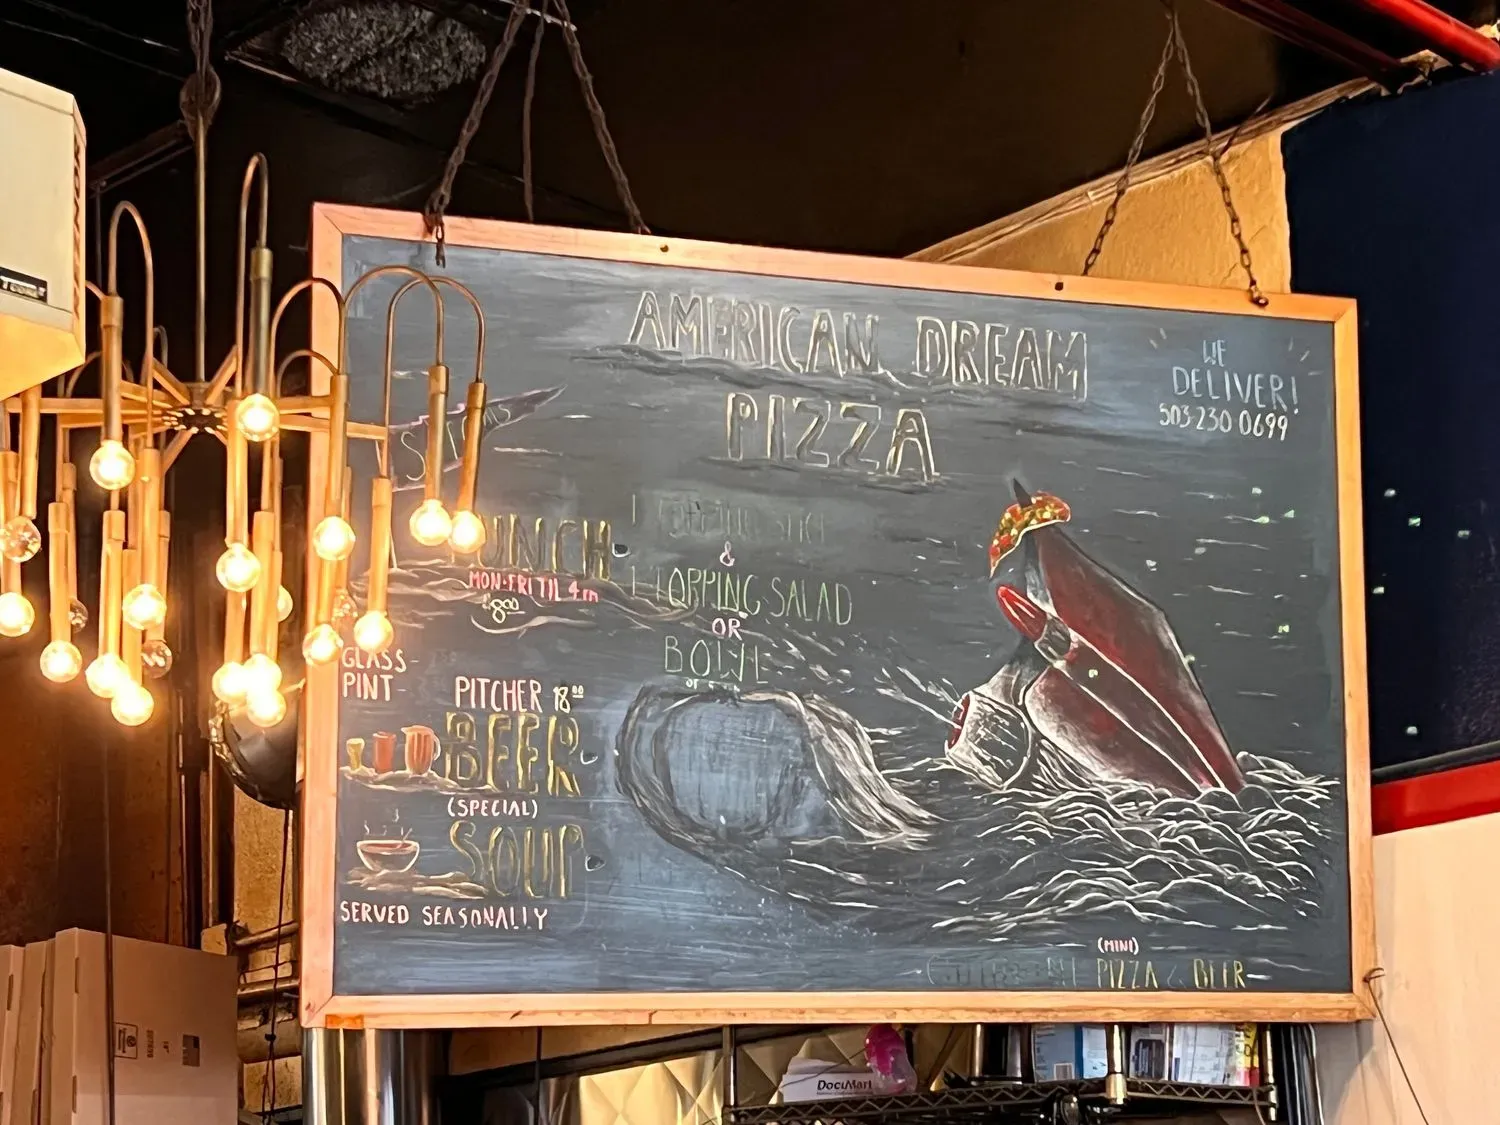 AMERICAN DREAM
PIZZA
WE
DELIVER!
503-230 0699
LUNCH
MON-FRI TIL 4PM
$8.00
1
&
1 TOPPING SALAD
OR
BOWL
GLASS-
PINT-
PITCHER 18.00
BEER
(SPECIAL)
SOUP
SERVED SEASONALLY
(MINI)
PIZZA & BEER
DocuMart